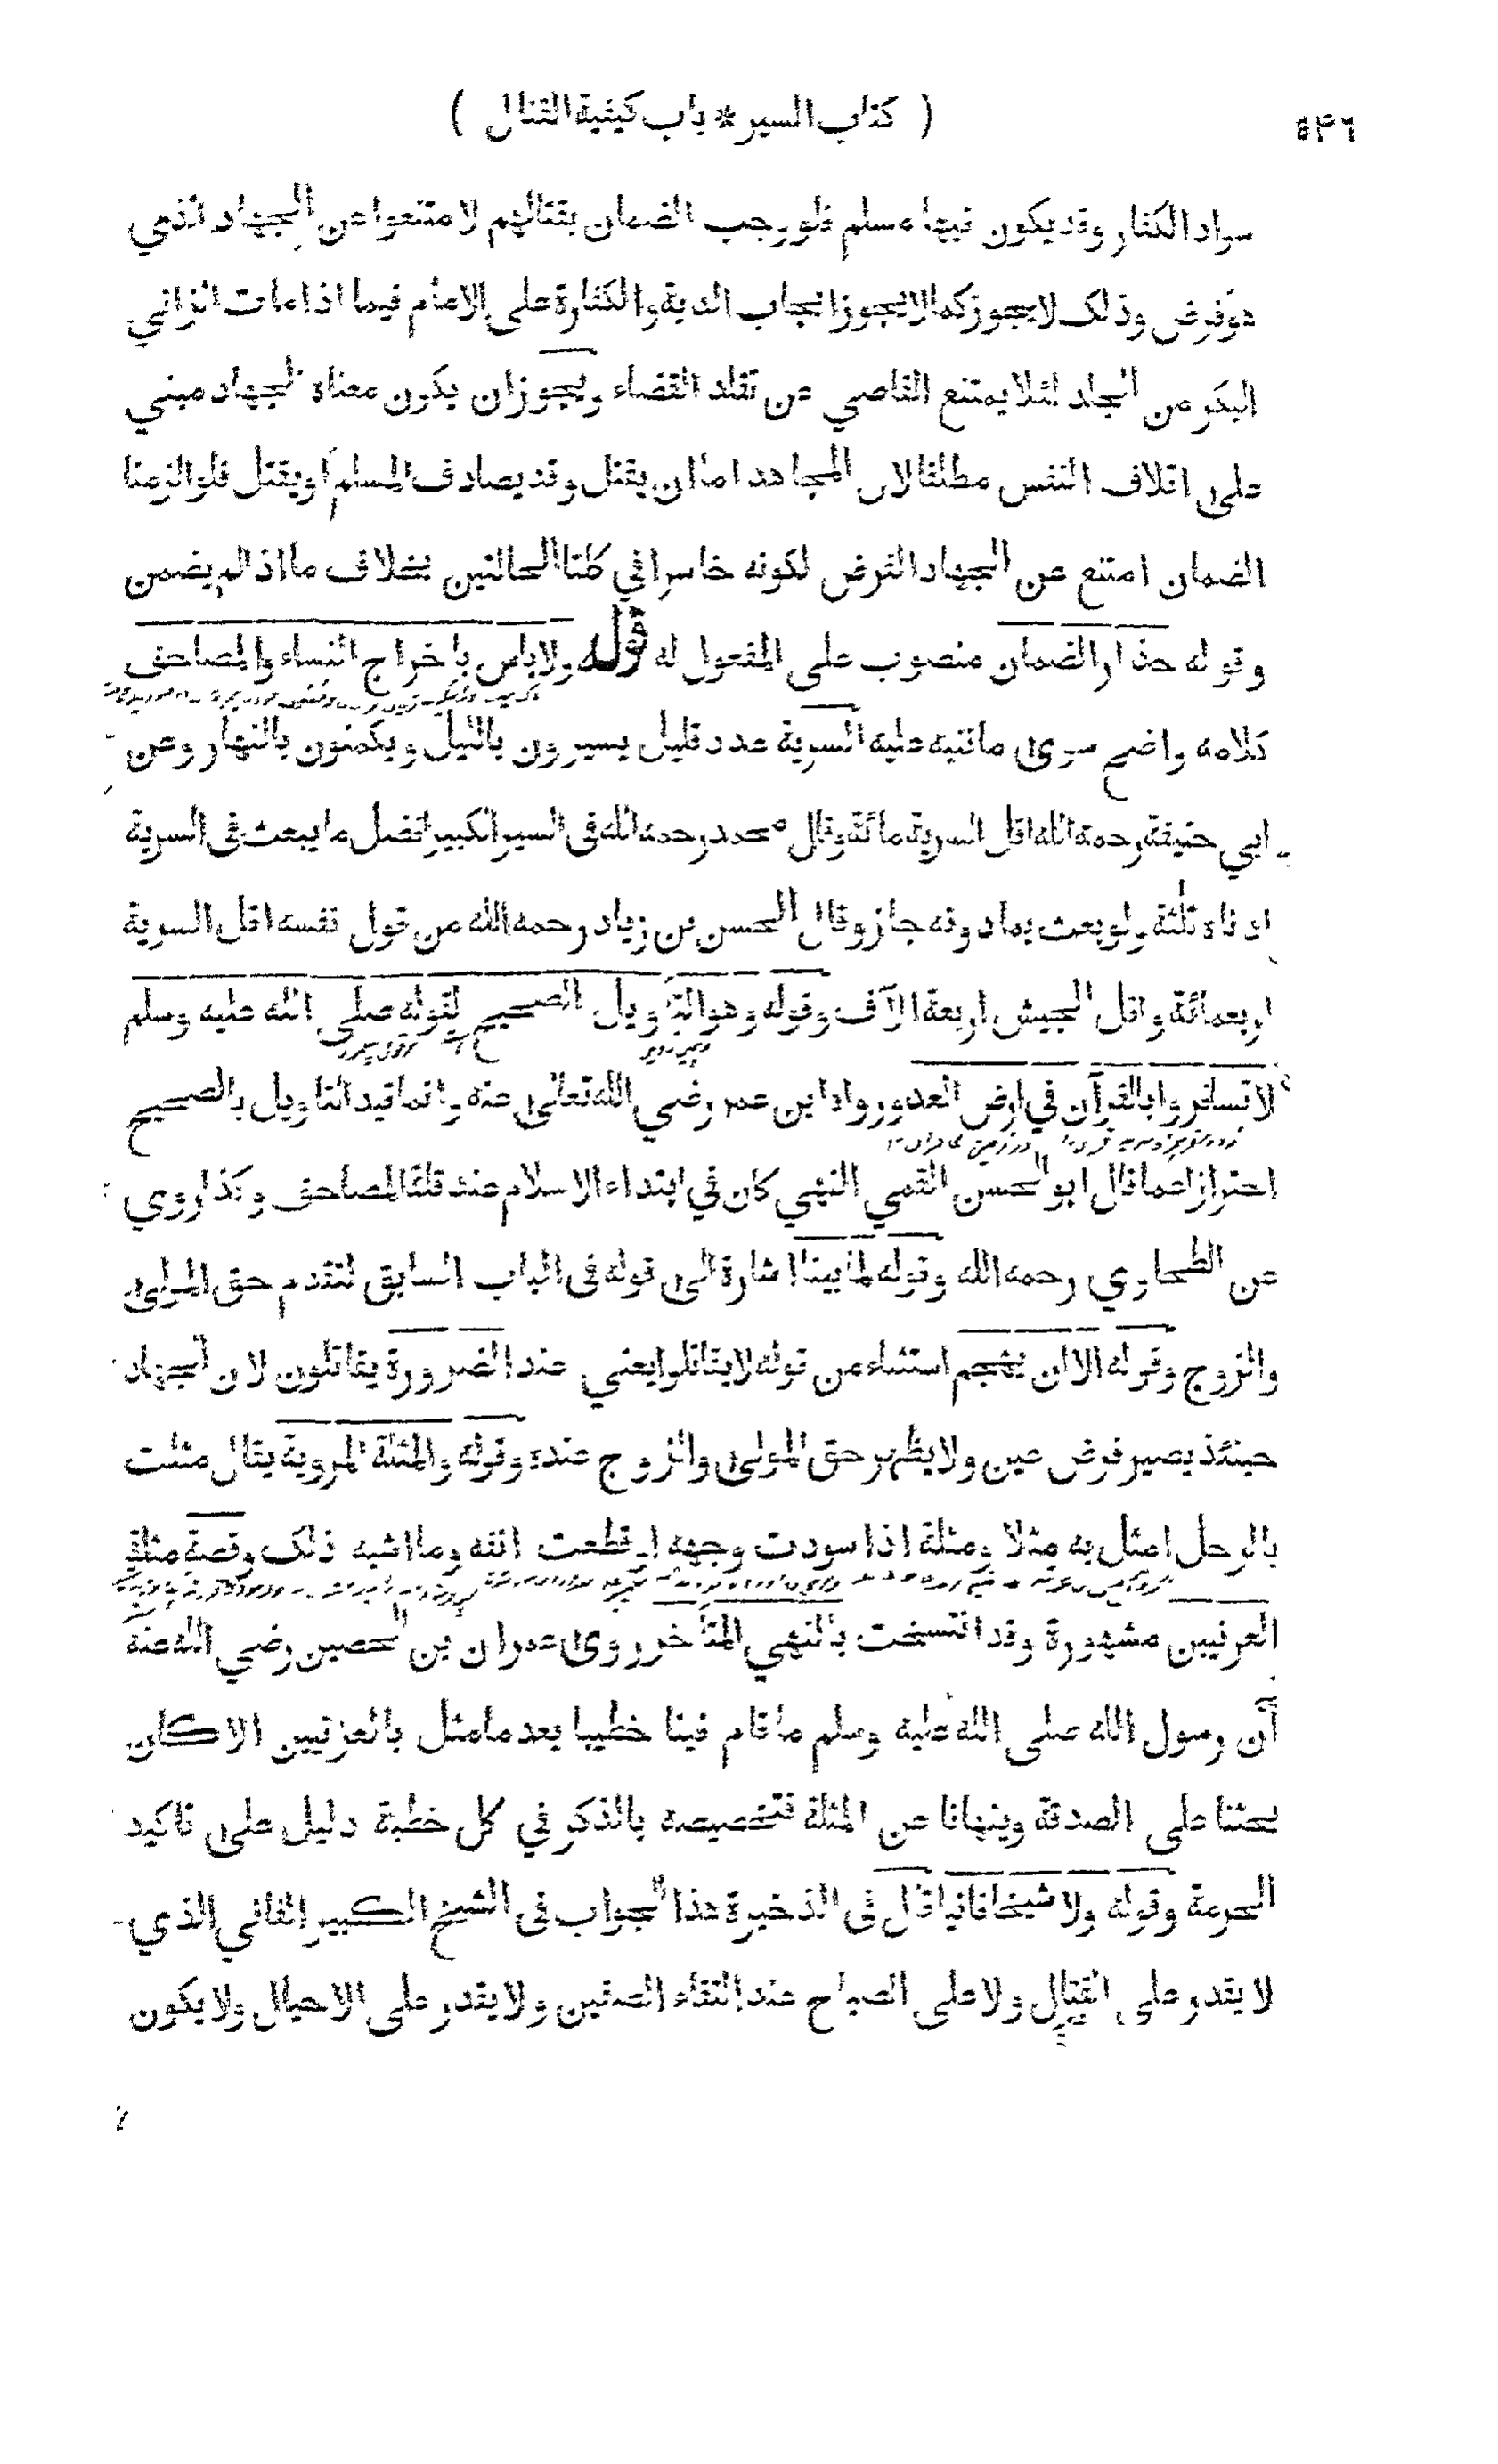 ٥٤٦ ( كتاب السير * باب كيفية القتال )
سواد الكفار وقد يكون فيها مسلم فلو وجب الضمان بقتالهم لامتنعوا عن الجهاد الذي
هو فرض وذلك لا يجوز كما لا يجوز ايجاب الدية والكفارة على الامام فيما اذا مات الزاني
البكر من الجلد لئلا يمتنع القاضي عن تقلد القضاء ويجوز ان يكون معناه الجهاد مبني
على اتلاف النفس مطلقا لان المجاهد اما ان يقتل وقد يصادف المسلم او يقتل فلو الزمنا
الضمان امتنع عن الجهاد الفرض لكونه خاسرا في كلتا الحالتين بخلاف ما اذا لم يضمن
وقوله حذار الضمان منصوب على المفعول له قوله ولا باس باخراج النساء والمصاحف
كلامه واضح سوى ما ننبه عليه السرية عدد قليل يسيرون بالليل ويكمنون بالنهار وعن
ابي حنيفة رحمه الله اقل السرية مائة وقال محمد رحمه الله في السير الكبير افضل ما يبعث في السرية
ادناه ثلثة ولو بعث بما دونه جاز وقال الحسن بن زياد رحمه الله من قول نفسه اقل السرية
اربعمائة واقل الجيش اربعة الآف وقوله وهو التاويل الصحيح لقوله صلى الله عليه وسلم
لا تسافروا بالقرآن في ارض العدو رواه ابن عمر رضي الله تعالى عنه وانما قيد التاويل بالصحيح
احترازا عما قال ابو الحسن القمي النهي كان في ابتداء الاسلام عند قلة المصاحف وكذا روي
عن الطحاوي رحمه الله وقوله لما بينا اشارة الى قوله في الباب السابق لتقدم حق المولى
والزوج وقوله الا ان يهجم استثناء من قوله لا يقاتلوا يعني عند الضرورة يقاتلون لان الجهاد
حينئذ يصير فرض عين ولا يظهر حق المولى والزوج عنده وقوله والمثلة المروية يقال مثلت
بالرجل امثل به مثلا ومثلة اذا سودت وجهه او قطعت انفه وما اشبه ذلك وقصة مثلة
العرنيين مشهورة وقد انتسخت بالنهي المتاخر روى عمران بن الحصين رضي الله عنه
أن رسول الله صلى الله عليه وسلم ما قام فينا خطيبا بعد ما مثل بالعرنيين الا كان
يحثنا على الصدقة وينهانا عن المثلة فتخصيصه بالذكر في كل خطبة دليل على تاكيد
الحرمة وقوله ولا شيخا فانيا قال في الذخيرة هذا الجواب في الشيخ الكبير الفاني الذي
لا يقدر على القتال ولا على الصياح عند التقاء الصفين ولا يقدر على الاحبال ولا يكون